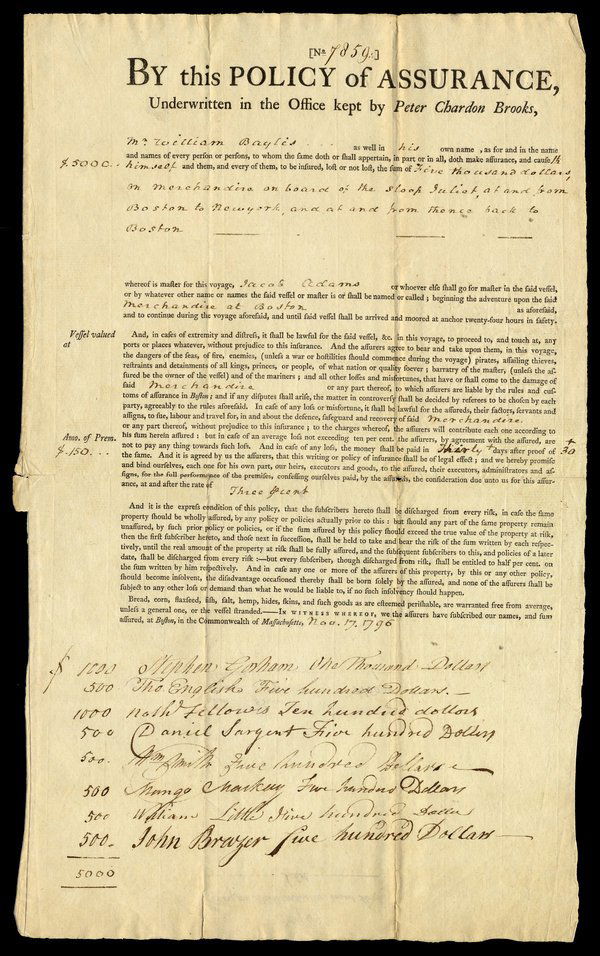 [No 7859.]
BY this POLICY of ASSURANCE,
Underwritten in the Office kept by Peter Chardon Brooks,
Mr. William Baylis as well in his own name, as for and in the name
and names of every person or persons, to whom the same doth or shall appertain, in part or in all, doth make assurance, and cause th
$5000.. himself and them, and every of them, to be insured, lost or not lost, the sum of Five thousand dollars,
on merchandise on board of the Sloop Juliet, at and from
Boston to Newyork, and at and from thence back to
Boston
whereof is master for this voyage, Jacob Adams or whoever else shall go for master in the said vessel,
or by whatever other name or names the said vessel or master is or shall be named or called; beginning the adventure upon the said
merchandise at Boston as aforesaid,
and to continue during the voyage aforesaid, and until said vessel shall be arrived and moored at anchor twenty-four hours in safety.
Vessel valued
at
And, in cases of extremity and distress, it shall be lawful for the said vessel, &c. in this voyage, to proceed to, and touch at, any
ports or places whatever, without prejudice to this insurance. And the assurers agree to bear and take upon them, in this voyage,
the dangers of the seas, of fire, enemies, (unless a war or hostilities should commence during the voyage) pirates, assailing thieves,
restraints and detainments of all kings, princes, or people, of what nation or quality soever; barratry of the master, (unless the as-
sured be the owner of the vessel) and of the mariners; and all other losses and misfortunes, that have or shall come to the damage of
said Merchandise or any part thereof, to which assurers are liable by the rules and cus-
toms of assurance in Boston; and if any disputes shall arise, the matter in controversy shall be decided by referees to be chosen by each
party, agreeably to the rules aforesaid. In case of any loss or misfortune, it shall be lawful for the assureds, their factors, servants and
assigns, to sue, labour and travel for, in and about the defence, safeguard and recovery of said Merchandise,
or any part thereof, without prejudice to this insurance; to the charges whereof, the assurers will contribute each one according to
his sum herein assured: but in case of an average loss not exceeding ten per cent. the assurers, by agreement with the assured, are
Amo. of Prem. not to pay any thing towards such loss. And in case of any loss, the money shall be paid in Thirty + days after proof of + 30
$150... the same. And it is agreed by us the assurers, that this writing or policy of insurance shall be of legal effect; and we hereby promise
and bind ourselves, each one for his own part, our heirs, executors and goods, to the assured, their executors, administrators and as-
signs, for the full performance of the premises, confessing ourselves paid, by the assureds, the consideration due unto us for this assur-
ance, at and after the rate of
Three pr Cent
And it is the express condition of this policy, that the subscribers hereto shall be discharged from every risk, in case the same
property should be wholly assured, by any policy or policies actually prior to this: but should any part of the same property remain
unassured, by such prior policy or policies, or if the sum assured by this policy should exceed the true value of the property at risk,
then the first subscriber hereto, and those next in succession, shall be held to take and bear the risk of the sum written by each respec-
tively, until the real amount of the property at risk shall be fully assured, and the subsequent subscribers to this, and policies of a later
date, shall be discharged from every risk:—but every subscriber, though discharged from risk, shall be entitled to half per cent. on
the sum written by him respectively. And in case any one or more of the assurers of this property, by this or any other policy,
should become insolvent, the disadvantage occasioned thereby shall be born solely by the assured, and none of the assurers shall be
subject to any other loss or demand than what he would be liable to, if no such insolvency should happen.
Bread, corn, flaxseed, fish, salt, hemp, hides, skins, and such goods as are esteemed perishable, are warranted free from average,
unless a general one, or the vessel stranded.—IN WITNESS WHEREOF, we the assurers have subscribed our names, and sum
assured, at Boston, in the Commonwealth of Massachusetts, Nov. 17. 1796
$ 1000 Stephen Gorham One Thousand Dollars
500 Tho English Five hundred Dollars.—
1000 Nathl Fellowes Ten hundred dollars
500 Daniel Sargent Five hundred Dollars
500. Wm Smith Five hundred Dollars
500 Mungo Mackay Five hundred Dollars
500 William Little Five hundred Dollars
500. John Brazer five hundred Dollars
5000